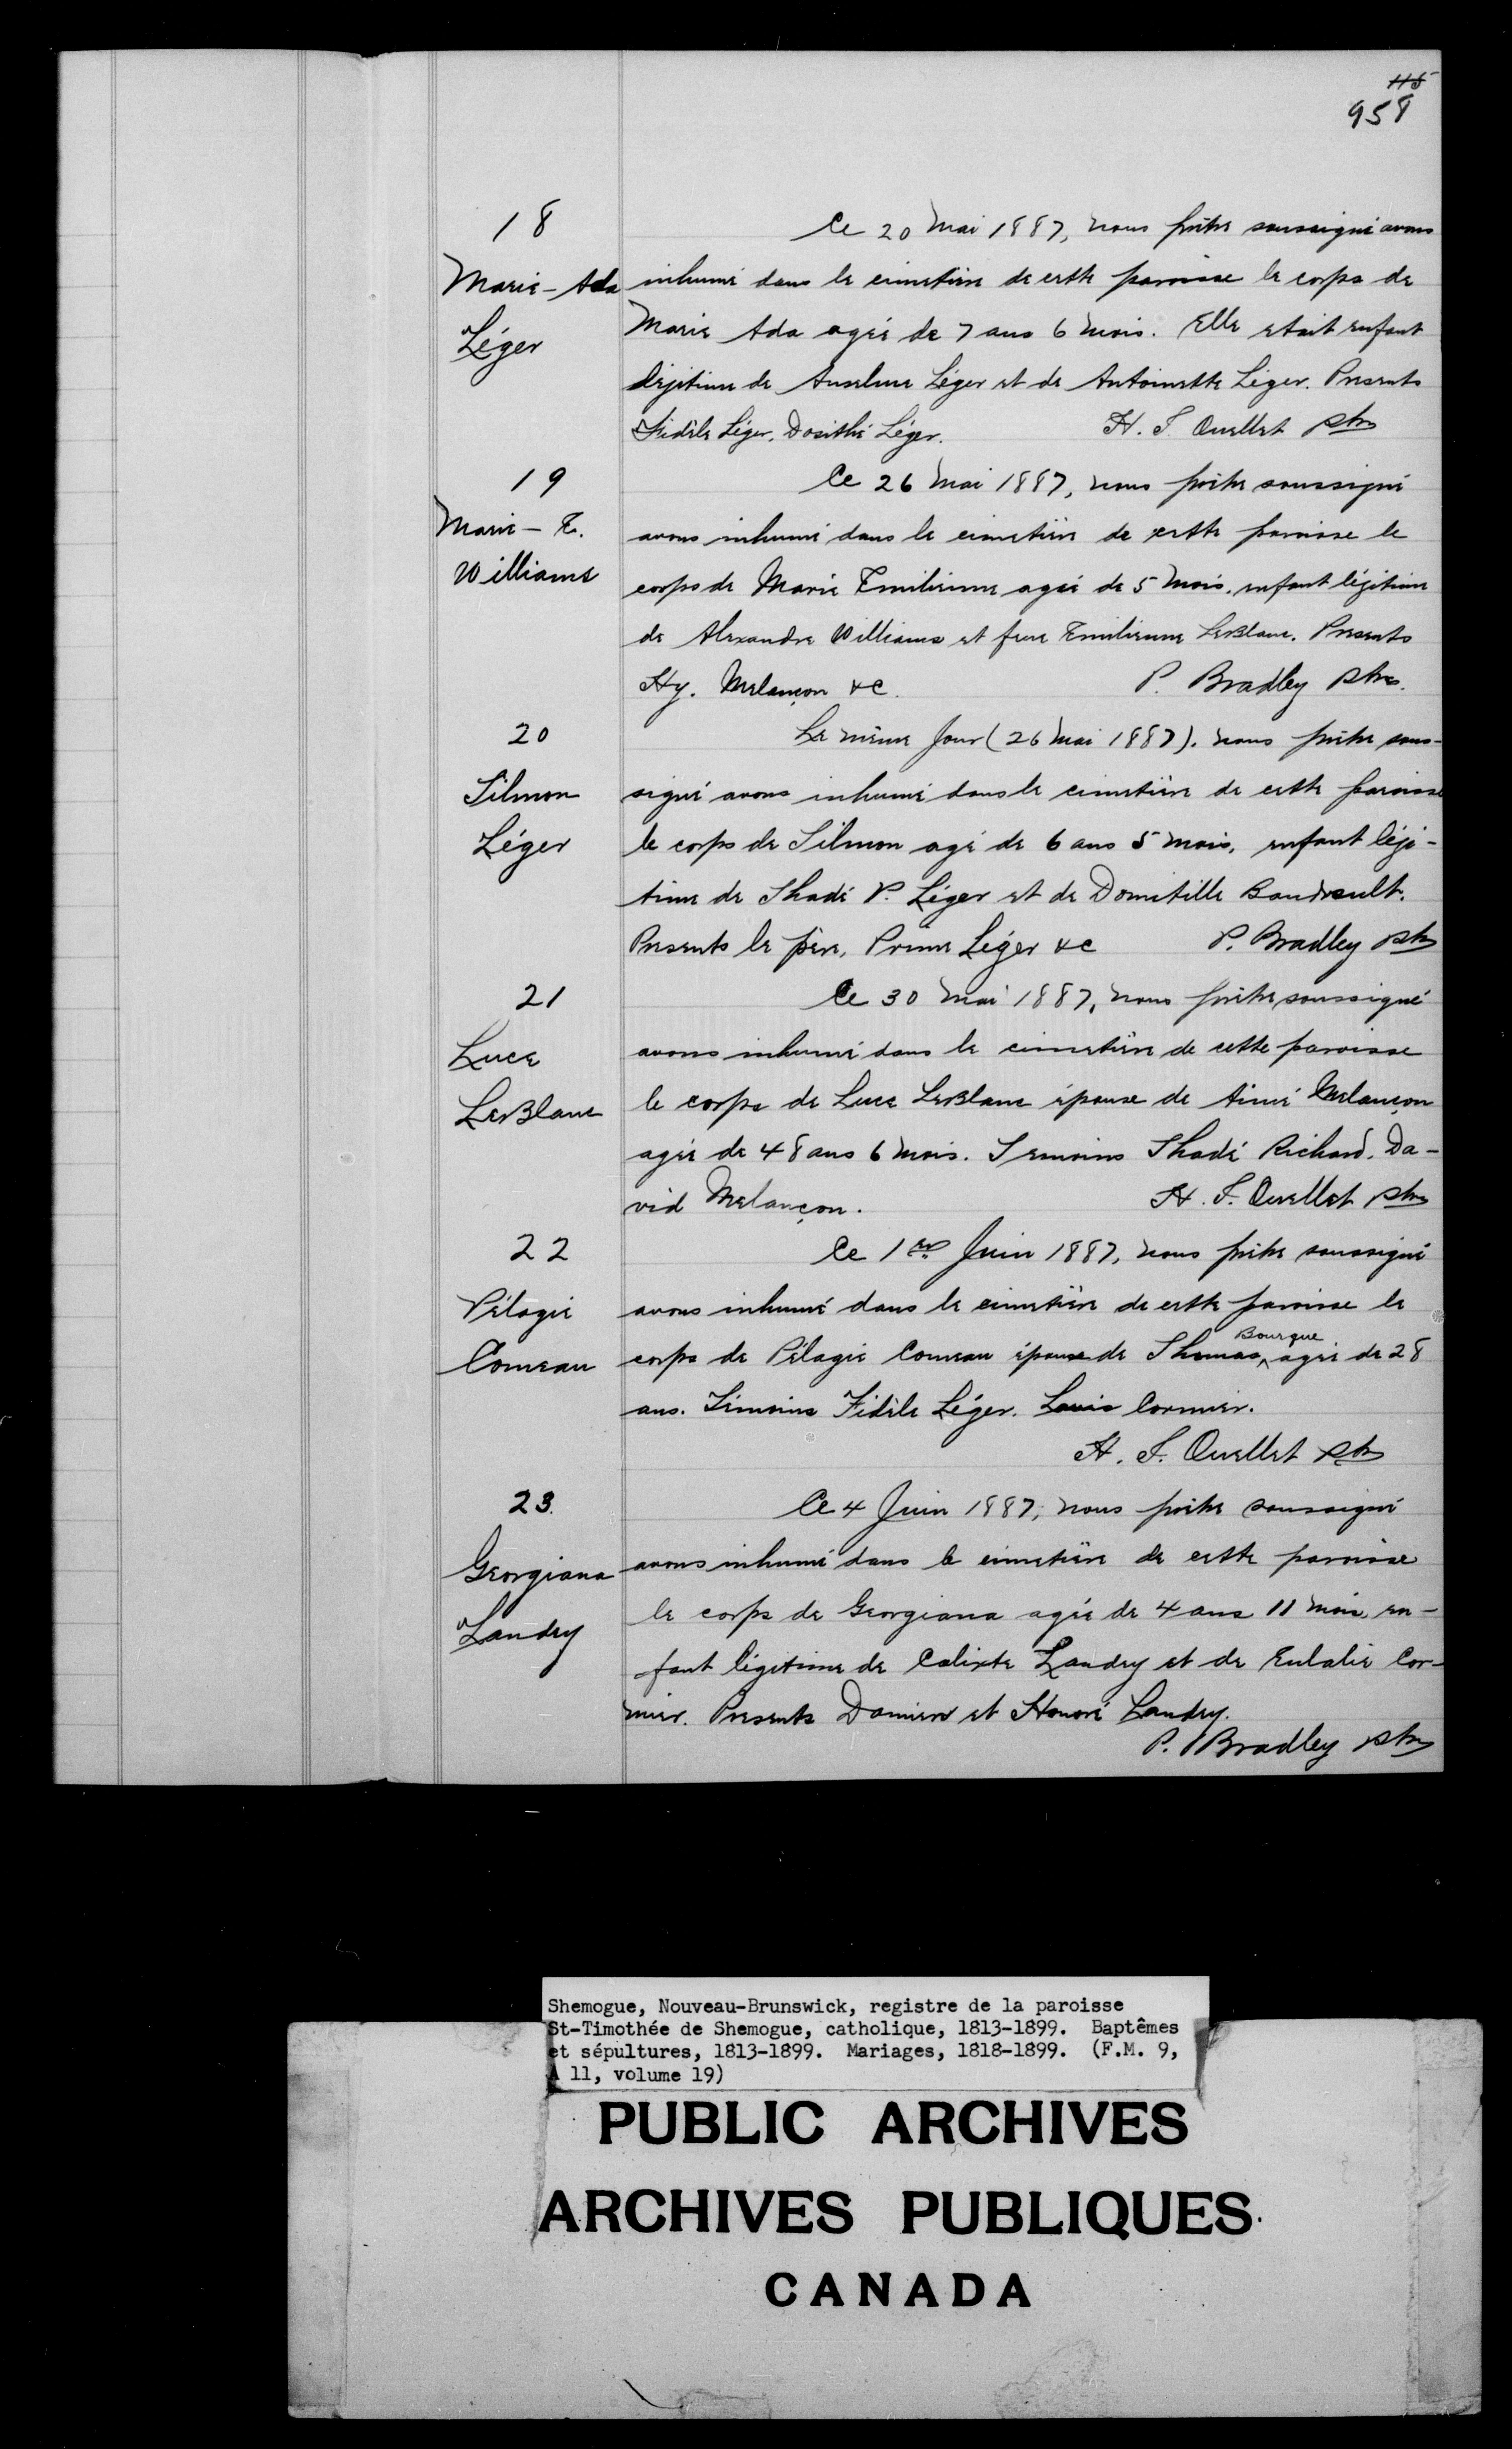 115
958
18
Marie-Ada
Léger
Ce 20 Mai 1887, nous prêtre soussigné avons
inhumé dans le cimetière de cette paroisse le corps de
Marie Ada agée de 7 ans 6 mois. Elle etait enfant
légitime de Anselme Léger et de Antoinette Léger. Presents
Fidèle Léger, Dosithé Léger. H. T. Ouellet Ptre
19
Marie-E.
Williams
Ce 26 Mai 1887, nous prêtre soussigné
avons inhumé dans le cimetière de cette paroisse le
corps de Marie Emilienne agée de 5 mois, enfant légitime
de Alexandre Williams et feue Emilienne LeBlanc. Presents
Hy. Melançon &c. P. Bradley Ptre.
20
Tilmon
Léger
Le même jour (26 Mai 1887). nous prêtre sous-
signé avons inhumé dans le cimetière de cette paroisse
le corps de Tilmon agé de 6 ans 5 mois, enfant légi-
time de Thadé P. Léger et de Domitille Boudreault.
Presents le père, Prime Léger &c P. Bradley Ptre
21
Luce
LeBlanc
Ce 30 Mai 1887, nous prêtre soussigné
avons inhumé dans le cimetière de cette paroisse
le corps de Luce LeBlanc épouse de Aimé Melançon
agée de 48 ans 6 mois. Temoins Thadé Richard. Da-
vid Melançon. H. T. Ouellet Ptre
22
Pélagie
Comeau
Ce 1er Juin 1887, nous prêtre soussigné
avons inhumé dans le cimetière de cette paroisse le
corps de Pélagie Comeau épouse de Thomas Bourque agée de 28
ans. Témoins Fidèle Léger. Louis Cormier.
H. T. Ouellet Ptre
23.
Georgiana
Landry
Ce 4 Juin 1887, nous prêtre soussigné
avons inhumé dans le cimetière de cette paroisse
le corps de Georgiana agée de 4 ans 11 mois, en-
fant légitime de Calixte Landry et de Eulalie Cor-
mier. Presents Damien et Honoré Landry.
P. Bradley Ptre
Shemogue, Nouveau-Brunswick, registre de la paroisse
St-Timothée de Shemogue, catholique, 1813-1899. Baptêmes
et sépultures, 1813-1899. Mariages, 1818-1899. (F.M. 9,
A 11, volume 19)
PUBLIC ARCHIVES
ARCHIVES PUBLIQUES
CANADA